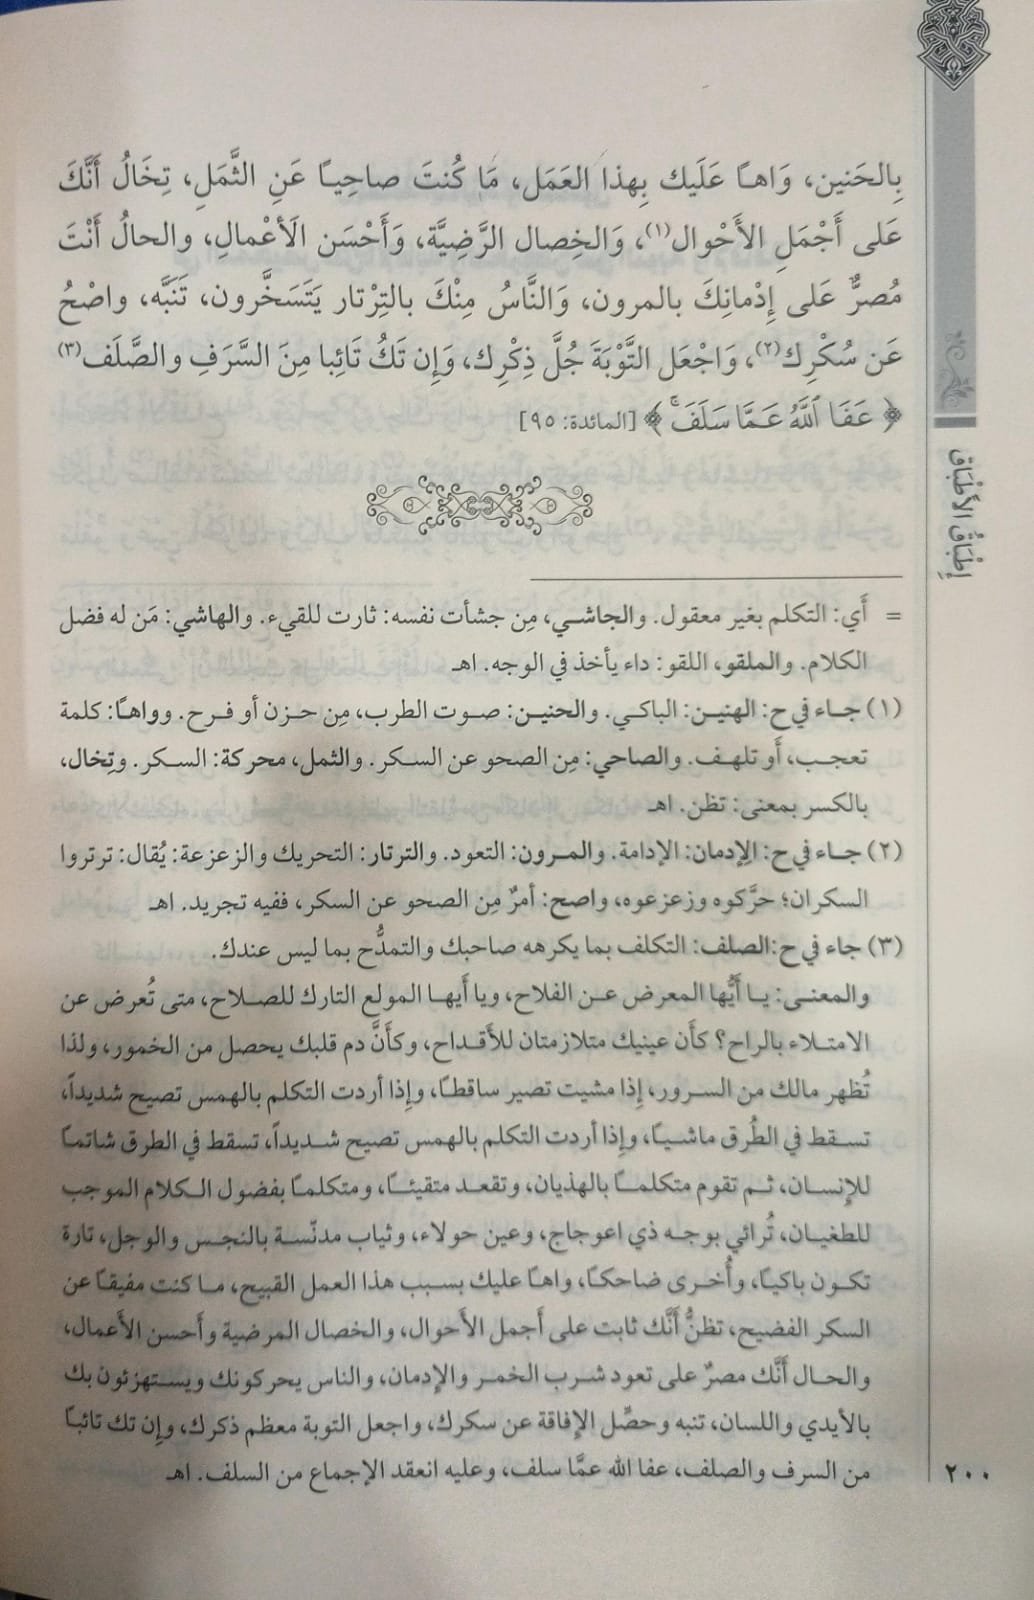 بِالحَنين، وَاهاً عَلَيك بِهذا العَمَل، مَا كُنتَ صاحِياً عَنِ الثَّمَلِ، تِخَالُ أَنَّكَ
عَلى أَجْمَلِ الأَحْوال(١)، وَالخِصال الرَّضِيَّة، وَأَحْسَن الَأعْمالِ، والحالُ أَنْتَ
مُصرٌّ عَلى إِدْمانِكَ بالمرون، وَالنَّاسُ مِنْكَ بالتِرْتار يَتَسَخَّرون، تَنَبَّه، واصْحُ
عَن سُكْرِك(٢)، وَاجْعَل التَّوْبَةَ جُلَّ ذِكْرِك، وَإِن تَكُ تَائِبا مِنَ السَّرَفِ والصَّلَف(٣)
﴿ عَفَا ٱللَّهُ عَمَّا سَلَفَ ۚ ﴾ [المائدة: ٩٥]
إِطْبَاقُ الأَطْبَاق
= أَي: التكلم بغير معقول. والجاشي، مِن جشأت نفسه: ثارت للقيء. والهاشي: مَن له فضل
الكلام. والملقو، اللقو: داء يأخذ في الوجه. اهـ
(١) جاء في ح: الهنين: الباكي. والحنين: صوت الطرب، مِن حزن أو فرح. وواهاً: كلمة
تعجب، أَو تلهف. والصاحي: مِن الصحو عن السكر. والثمل، محركة: السكر. وتِخال،
بالكسر بمعنى: تظن. اهـ
(٢) جاء في ح: الإِدمان: الإدامة. والمرون: التعود. والترتار: التحريك والزعزعة: يُقال: ترتروا
السكران؛ حرَّكوه وزعزعوه، واصح: أمرٌ مِن الصحو عن السكر، ففيه تجريد. اهـ
(٣) جاء في ح:الصلف: التكلف بما يكرهه صاحبك والتمدُّح بما ليس عندك.
والمعنى: يا أَيُّها المعرض عن الفلاح، ويا أَيها المولع التارك للصلاح، متى تُعرض عن
الامتلاء بالراح؟ كأَن عينيك متلازمتان للأَقداح، وكأَنَّ دم قلبك يحصل من الخمور، ولذا
تُظهر مالك من السرور، إِذا مشيت تصير ساقطاً، وإِذا أردت التكلم بالهمس تصيح شديداً،
تسقط في الطُرق ماشياً، وإِذا أردت التكلم بالهمس تصيح شديداً، تسقط في الطرق شاتماً
للإِنسان، ثم تقوم متكلماً بالهذيان، وتقعد متقيئاً، ومتكلماً بفضول الكلام الموجب
للطغيان، تُرائي بوجه ذي اعوجاج، وعين حولاء، وثياب مدنّسة بالنجس والوجل، تارة
تكون باكياً، وأُخرى ضاحكاً، واهاً عليك بسبب هذا العمل القبيح، ما كنت مفيقاً عن
السكر الفضيح، تظنُّ أَنَّك ثابت على أَجمل الأَحوال، والخصال المرضية وأَحسن الأَعمال،
والحال أَنَّك مصرٌ على تعود شرب الخمر والإِدمان، والناس يحركونك ويستهزئون بك
بالأيدي واللسان، تنبه وحصِّل الإفاقة عن سكرك، واجعل التوبة معظم ذكرك، وإِن تك تائباً
من السرف والصلف، عفا الله عمَّا سلف، وعليه انعقد الإجماع من السلف. اهـ
٢٠٠